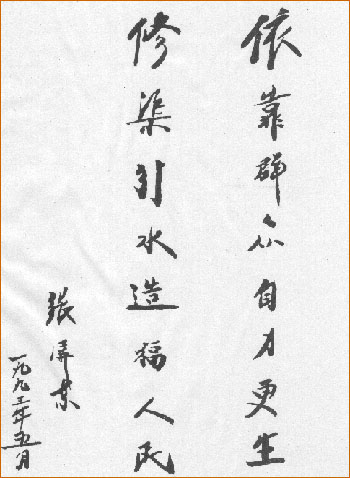 依靠群众自力更生
修渠引水造福人民
張屏东
一九九三年五月